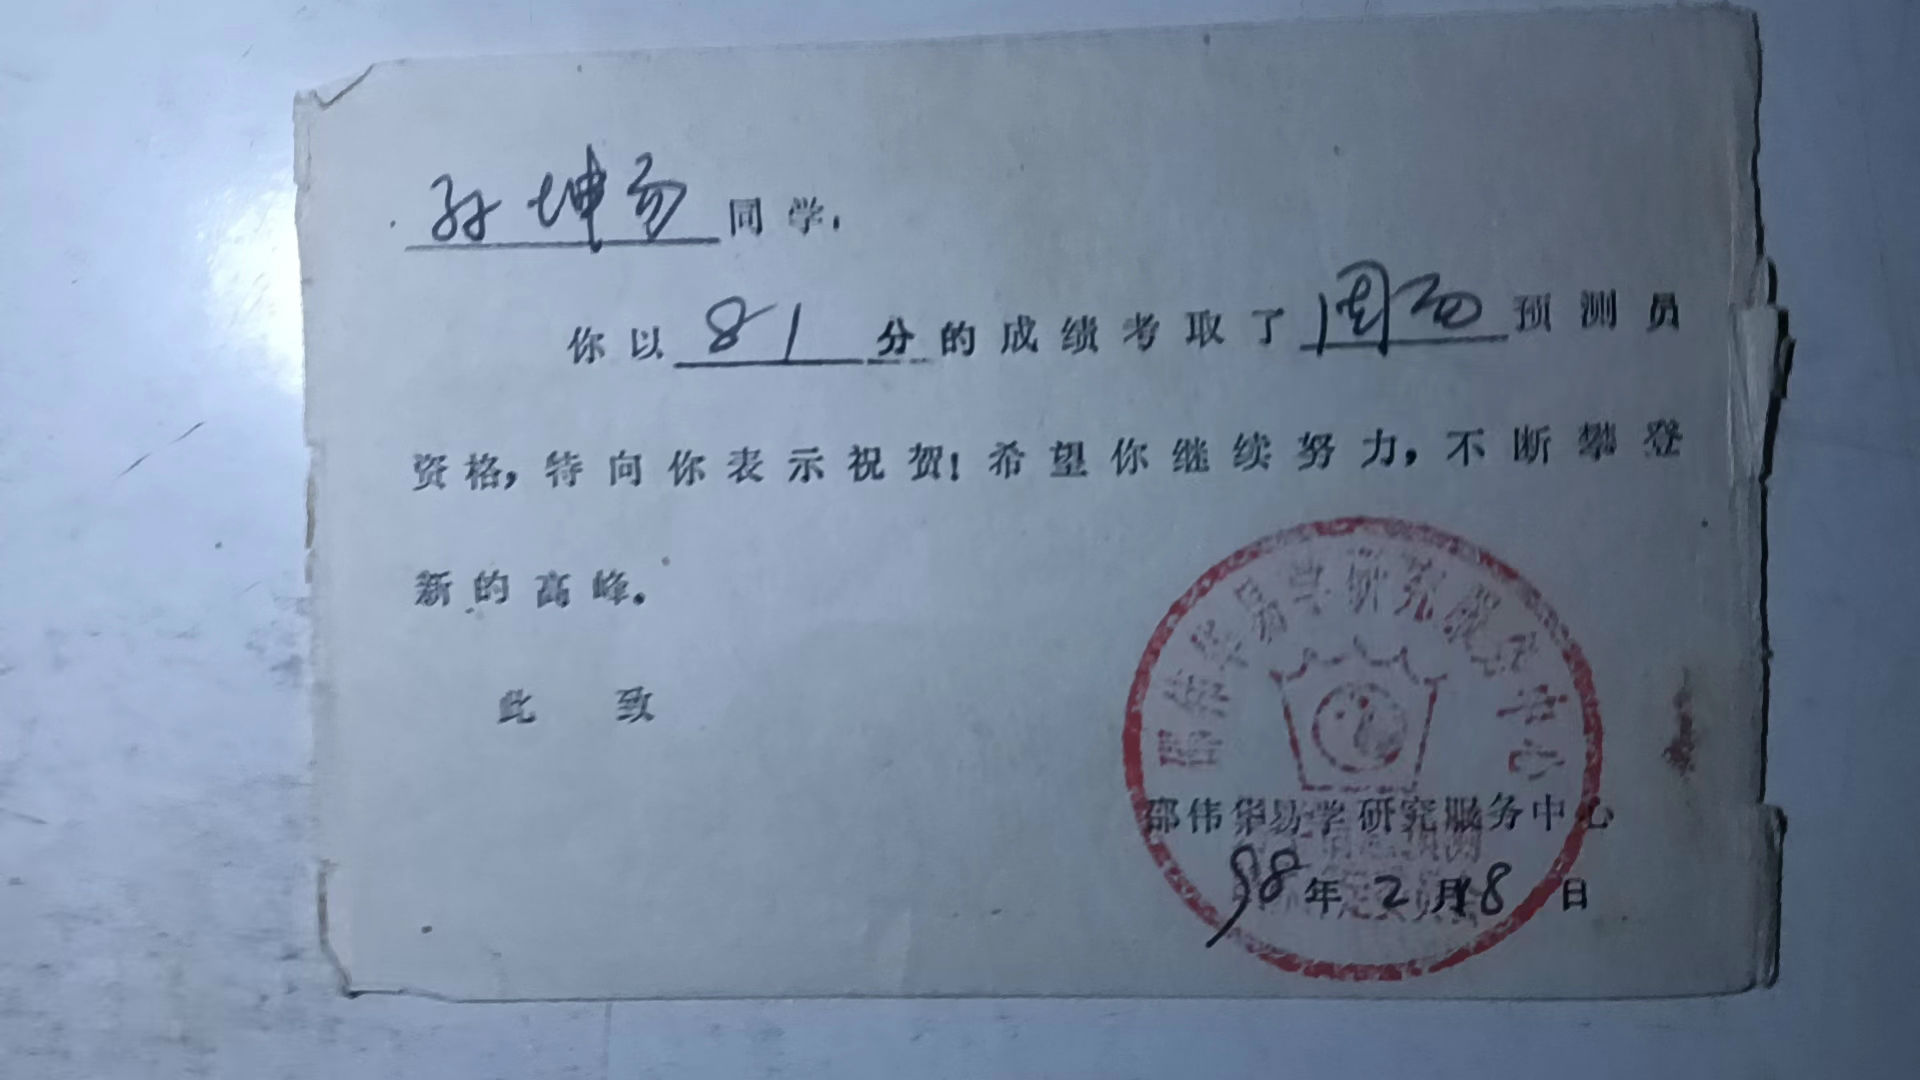 孙坤易同学，
你以81分的成绩考取了周易预测员
资格，特向你表示祝贺！希望你继续努力，不断攀登
新的高峰。
此致
邵伟华易学研究服务中心
邵伟华易学研究服务中心
98年2月18日